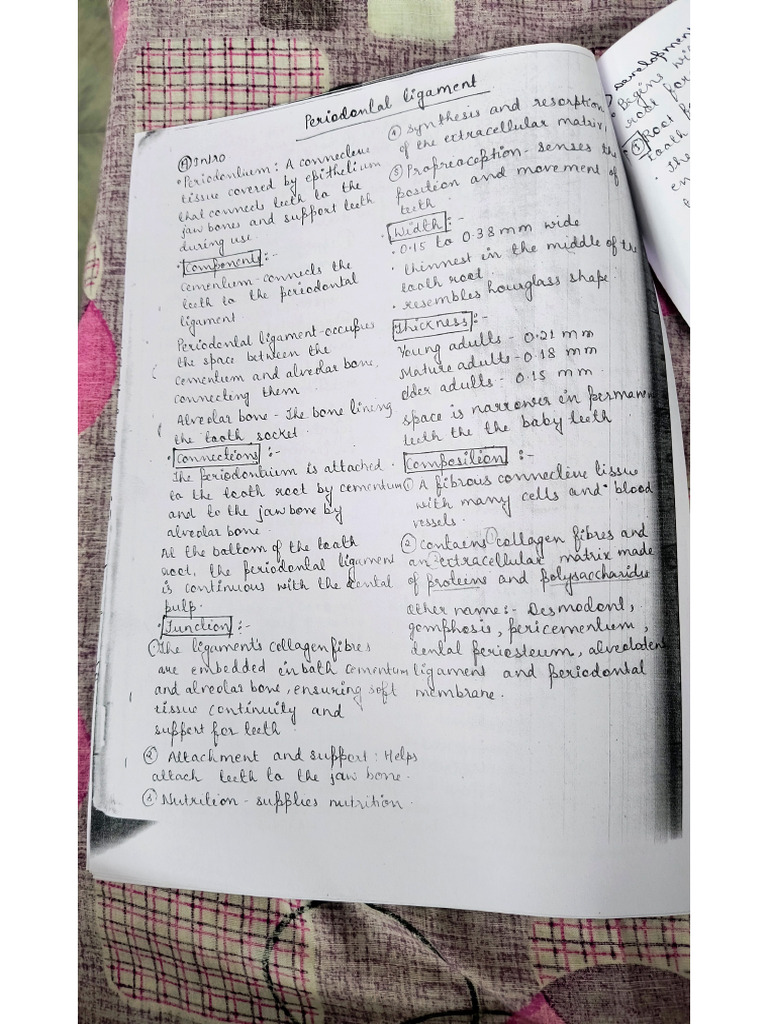 Periodontal ligament
(A) Intro
• Periodontium: A connective
tissue covered by epithelium
that connects teeth to the
jaw bones and support teeth
during use.
• Components:-
Cementum - connects the
teeth to the periodontal
ligament.
Periodontal ligament - occupies
the space between the
cementum and alveolar bone,
connecting them.
Alveolar bone - The bone lining
the tooth socket.
• Connections:-
The periodontium is attached
to the tooth root by cementum
and to the jaw bone by
alveolar bone.
At the bottom of the tooth
root, the periodontal ligament
is continuous with the dental
pulp.
• Function:-
① The ligament's collagen fibres
are embedded in both cementum
and alveolar bone, ensuring soft
tissue continuity and
support for teeth.
② Attachment and support: Helps
attach teeth to the jaw bone.
③ Nutrition - supplies nutrition.
④ Synthesis and resorption
of the extracellular matrix,
⑤ Propreaception - senses the
position and movement of
teeth.
Width:-
• 0.15 to 0.38 mm wide
• thinnest in the middle of the
tooth root.
• resembles hourglass shape.
Thickness:-
Young adults - 0.21 mm
Mature adults - 0.18 mm
Older adults - 0.15 mm.
space is narrower in permanen
teeth the the baby teeth
Composition:-
① A fibrous connective tissue
with many cells and blood
vessels.
② Contains collagen fibres and
an extracellular matrix made
of proteins and polysaccharides
Other name:- Desmodont,
gomphosis, pericementum,
dental periosteum, alveolodent
ligament and periodontal
membrane.
Development
• Begins wi
root for
① Root f
tooth
• the
en